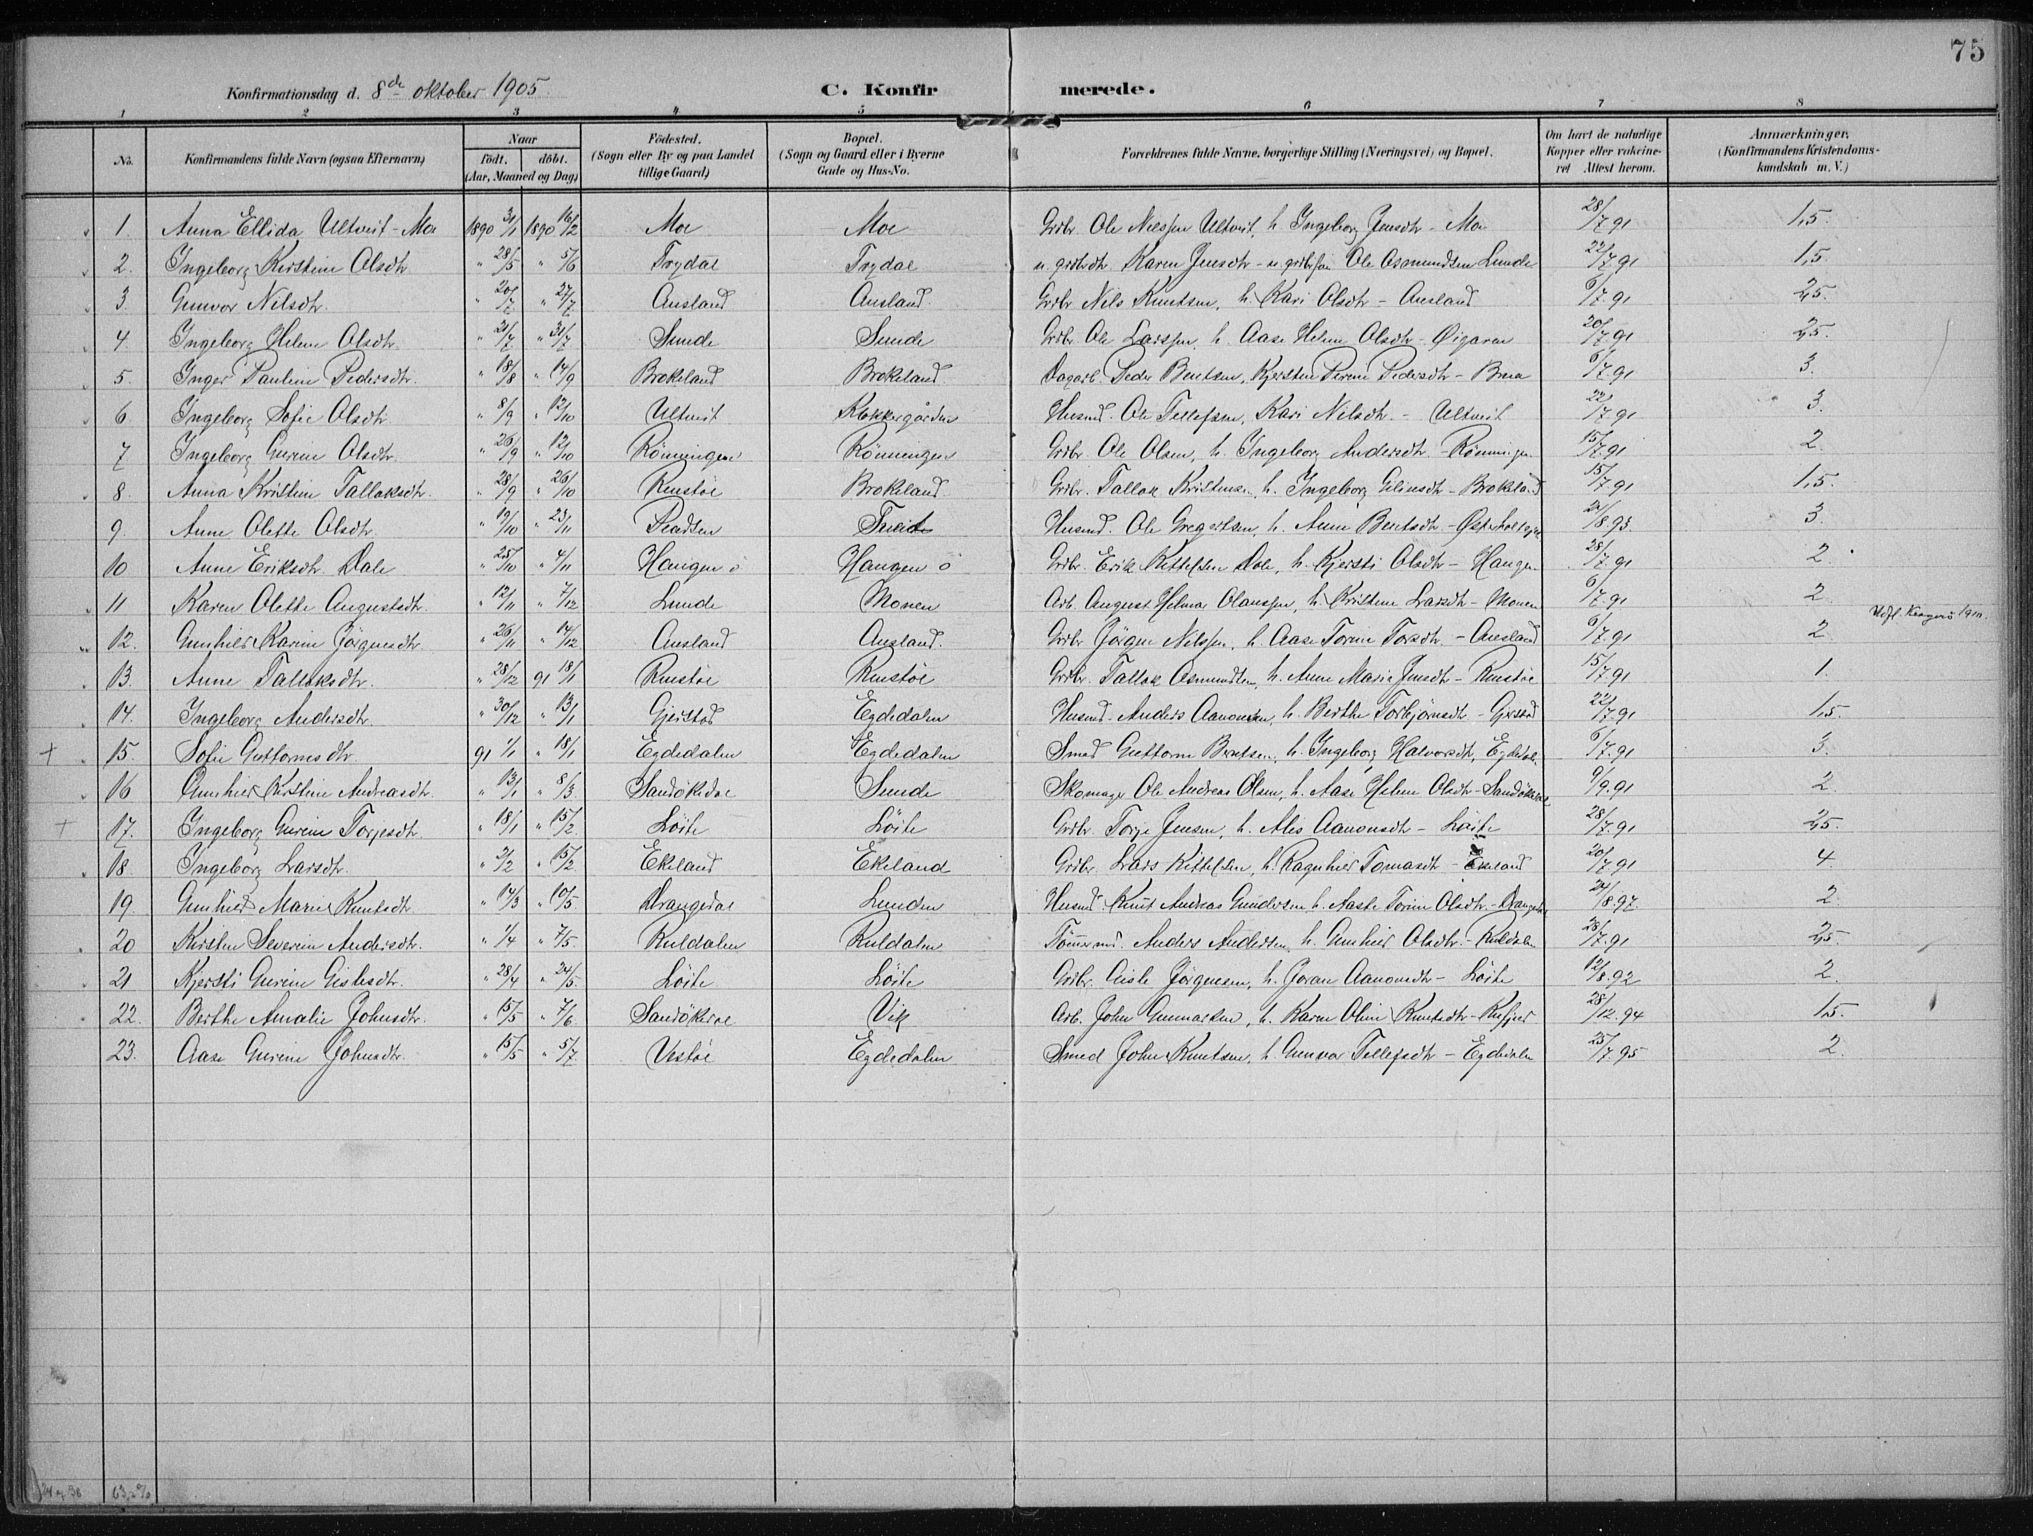 75
Konfirmationsdag d. 8de oktober 1905. C. Konfirmerede.
1 2 3 4 5 6 7 8
No. Konfirmandens fulde Navn (ogsaa Efternavn) Naar født. døbt. (Aar, Maaned og Dag) Fødested. (Sogn eller By og paa Landet tillige Gaard) Bopæl. (Sogn og Gaard eller i Byerne Gade og Hus-No. Forældrenes fulde Navne, borgerlige Stilling (Næringsvei) og Bopæl. Om havt de naturlige Kopper eller vakcineret Attest herom. Anmærkninger. (Konfirmandens Kristendomskundskab m. V.)
1. Anna Ellida Ultveit-Moe 1890 31/1 1890 16/2 Moe Moe Grdbr. Ole Nilssen Ultveit, h. Ingeborg Jensdtr - Moe 28/7 91 1,5.
2. Ingeborg Kirstine Olsdtr " 28/5 " 5/6 Trydal Trydal Karen Jensdtr - Ole Osmundsen Lunde 22/7 91 1,5.
3. Gunvor Nilsdtr. " 20/7 " 27/7 Ausland Ausland. Grdbr Nils Knutsen, h. Kari Olsdtr - Ausland 6/7. 91 2,5.
4. Ingeborg Helene Olsdtr. " 21/7 " 31/7 Sunde Sunde Grdbr Ole Larssen, h. Aase Helene Olsdtr - Øigaren 20/7 91 2,5.
5. Inger Pauline Pedersdtr. " 18/8 " 14/9 Brokeland Brokeland Dagarb. Peder Bentsen, Kjersten Perine Pedersdtr - 6/7. 91 3.
6. Ingeborg Sofie Olsdtr. " 8/9 " 12/10 Ultveit Klokkergården Husmd. Ole Tellefsen, Kari Nilsdtr - Ultveit 22/7 91 3.
7 Ingeborg Gurine Olsdtr. " 26/9 " 12/10 Rönningen Rönningen Grdbr Ole Olsen, h. Ingeborg Andersdtr. - Rönningen 15/7 91 2.
8. Anna Kristine Tallaksdtr. " 28/9 " 26/10 Rustøe Brokeland Grdbr. Tallak Kristensen, h. Ingeborg - Brokeland 15/7 91 1,5.
9. Anne Olette Olsdtr. " 19/10 " 23/11 Tveit Husmd. Ole Gregertsen, h. Anne Bentsdtr - 24/8. 93. 3.
10 Anne Eriksdtr. Dale " 25/10 " 4/11 Haugen ö Haugen ö Grdbr. Erik Kittelsen Dale, h. Kjersti Olsdtr - Haugen 28/7. 91 2.
11 Karen Olette Augustsdtr. " 12/11 " 7/12 Lunde Monen Arb. August Helmer Olaussen, h. Kristine Larsdtr - Monen 6/7. 91 2. Udfl. Kragerö
12. Gunhild Karine Jörgensdtr " 26/11 " 14/12 Ausland Ausland. Grdbr Jörgen Nilssen, h. Aase Torine Torsdtr. - Ausland 6/7. 91 2.
13. Anne Tallaksdtr. " 28/12 91 18/1 Rustøe Rustøe Grdbr. Tallak Osmundsen, h. Anne Marie Jensdtr - Rustøe 15/7 91 1.
14. Ingeborg Andersdtr. " 30/12 " 13/1 Gjerstad Egdedalen Husmd. Anders Aanonsen, h. Berthe Torbjörnsdtr - Gjerstad 22/7. 91 1,5.
+ 15. Sofie Guttormsdtr. 91 1/1 " 18/1 Egdedalen Egdedalen Smed Guttorm Berntsen, h. Ingeborg Halvorsdtr, Egdedalen 6/7. 91 3.
16 Gunhild Kirstine Andreasdtr. " 13/1 " 8/3 Sandökedal Sunde Skomager Ole Andreas Olsen, h. Aase Helene Olsdtr - Sandökedal 9/9. 91 2.
+ 17. Ingeborg Gurine Torjesdtr. " 18/1 " 15/2 Löite Löite Grdbr. Torje Jensen, h. Alis Aanonsdtr - Löite 28/7. 91 2,5.
18. Ingeborg Larsdtr. " 2/2 " 15/2 Ekeland Ekeland Grdbr Lars Kittelsen, h. Ragnhild Tomasdtr - Ekeland 20/7 91 4.
19. Gunhild Marie Knutsdtr. " 14/3 " 10/5 Drangedal Lunden Husmd. Knut Andreas Gundersen, h. Aaste Torine Olsdtr - Drangedal 24/8. 97 2.
20 Kirsten Severine Andersdtr. " 1/4 " 7/5. Ruldalen Ruldalen Tömmermd. Anders Andersen, h. Gunhild Olsdtr. - Ruldalen 28/7. 91 2,5.
21 Kjersti Gurine Gislesdtr. " 28/4 " 24/5. Löite Löite Grdbr. Gisle Jörgensen, h. Joran Aanonsdtr - Löite 12/8. 92 2.
22. Berthe Amalie Johnsdtr. " 15/5 " 7/6 Sandökedal Vik Arb. John Gunnarsen, h. Karen Oline Knutsdtr - 28/12. 94 1,5.
23. Aase Gurine Johnsdtr. " 15/5 " 5/7 Vestøl Egdedalen Smed John Knutsen, h. Gunvor Tellefsdtr - Egdedalen 25/7. 95 2.